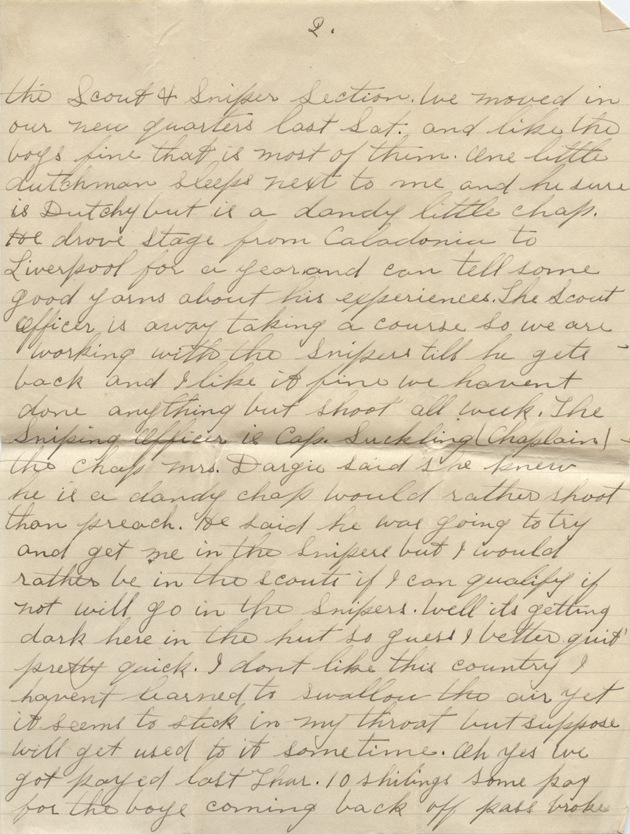 2.
the Scout & Sniper Section. We moved in
our new quarters last Sat. and like the
boys fine that is most of them. One little
dutchman sleeps next to me and he sure
is Dutchy but is a dandy little chap.
He drove stage from Caladonia to
Liverpool for a year and can tell some
good yarns about his experiences. The Scout
Officer is away taking a course so we are
working with the Snipers till he gets
back and I like it fine we havent
done anything but shoot all week. The
Sniping Officer is Cap. Suckling (Chaplain)
the chap Mrs. Dargie said she knew
he is a dandy chap would rather shoot
than preach. He said he was going to try
and get me in the Snipers but I would
rather be in the scouts if I can qualify if
not will go in the Snipers. Well its getting
dark here in the hut so guess I better quit
pretty quick. I dont like this country I
havent learned to swallow the air yet
it seems to stick in my throat but suppose
will get used to it sometime. Oh yes we
got payed last Thur. 10 shilings some pay
for the boys coming back off pass broke